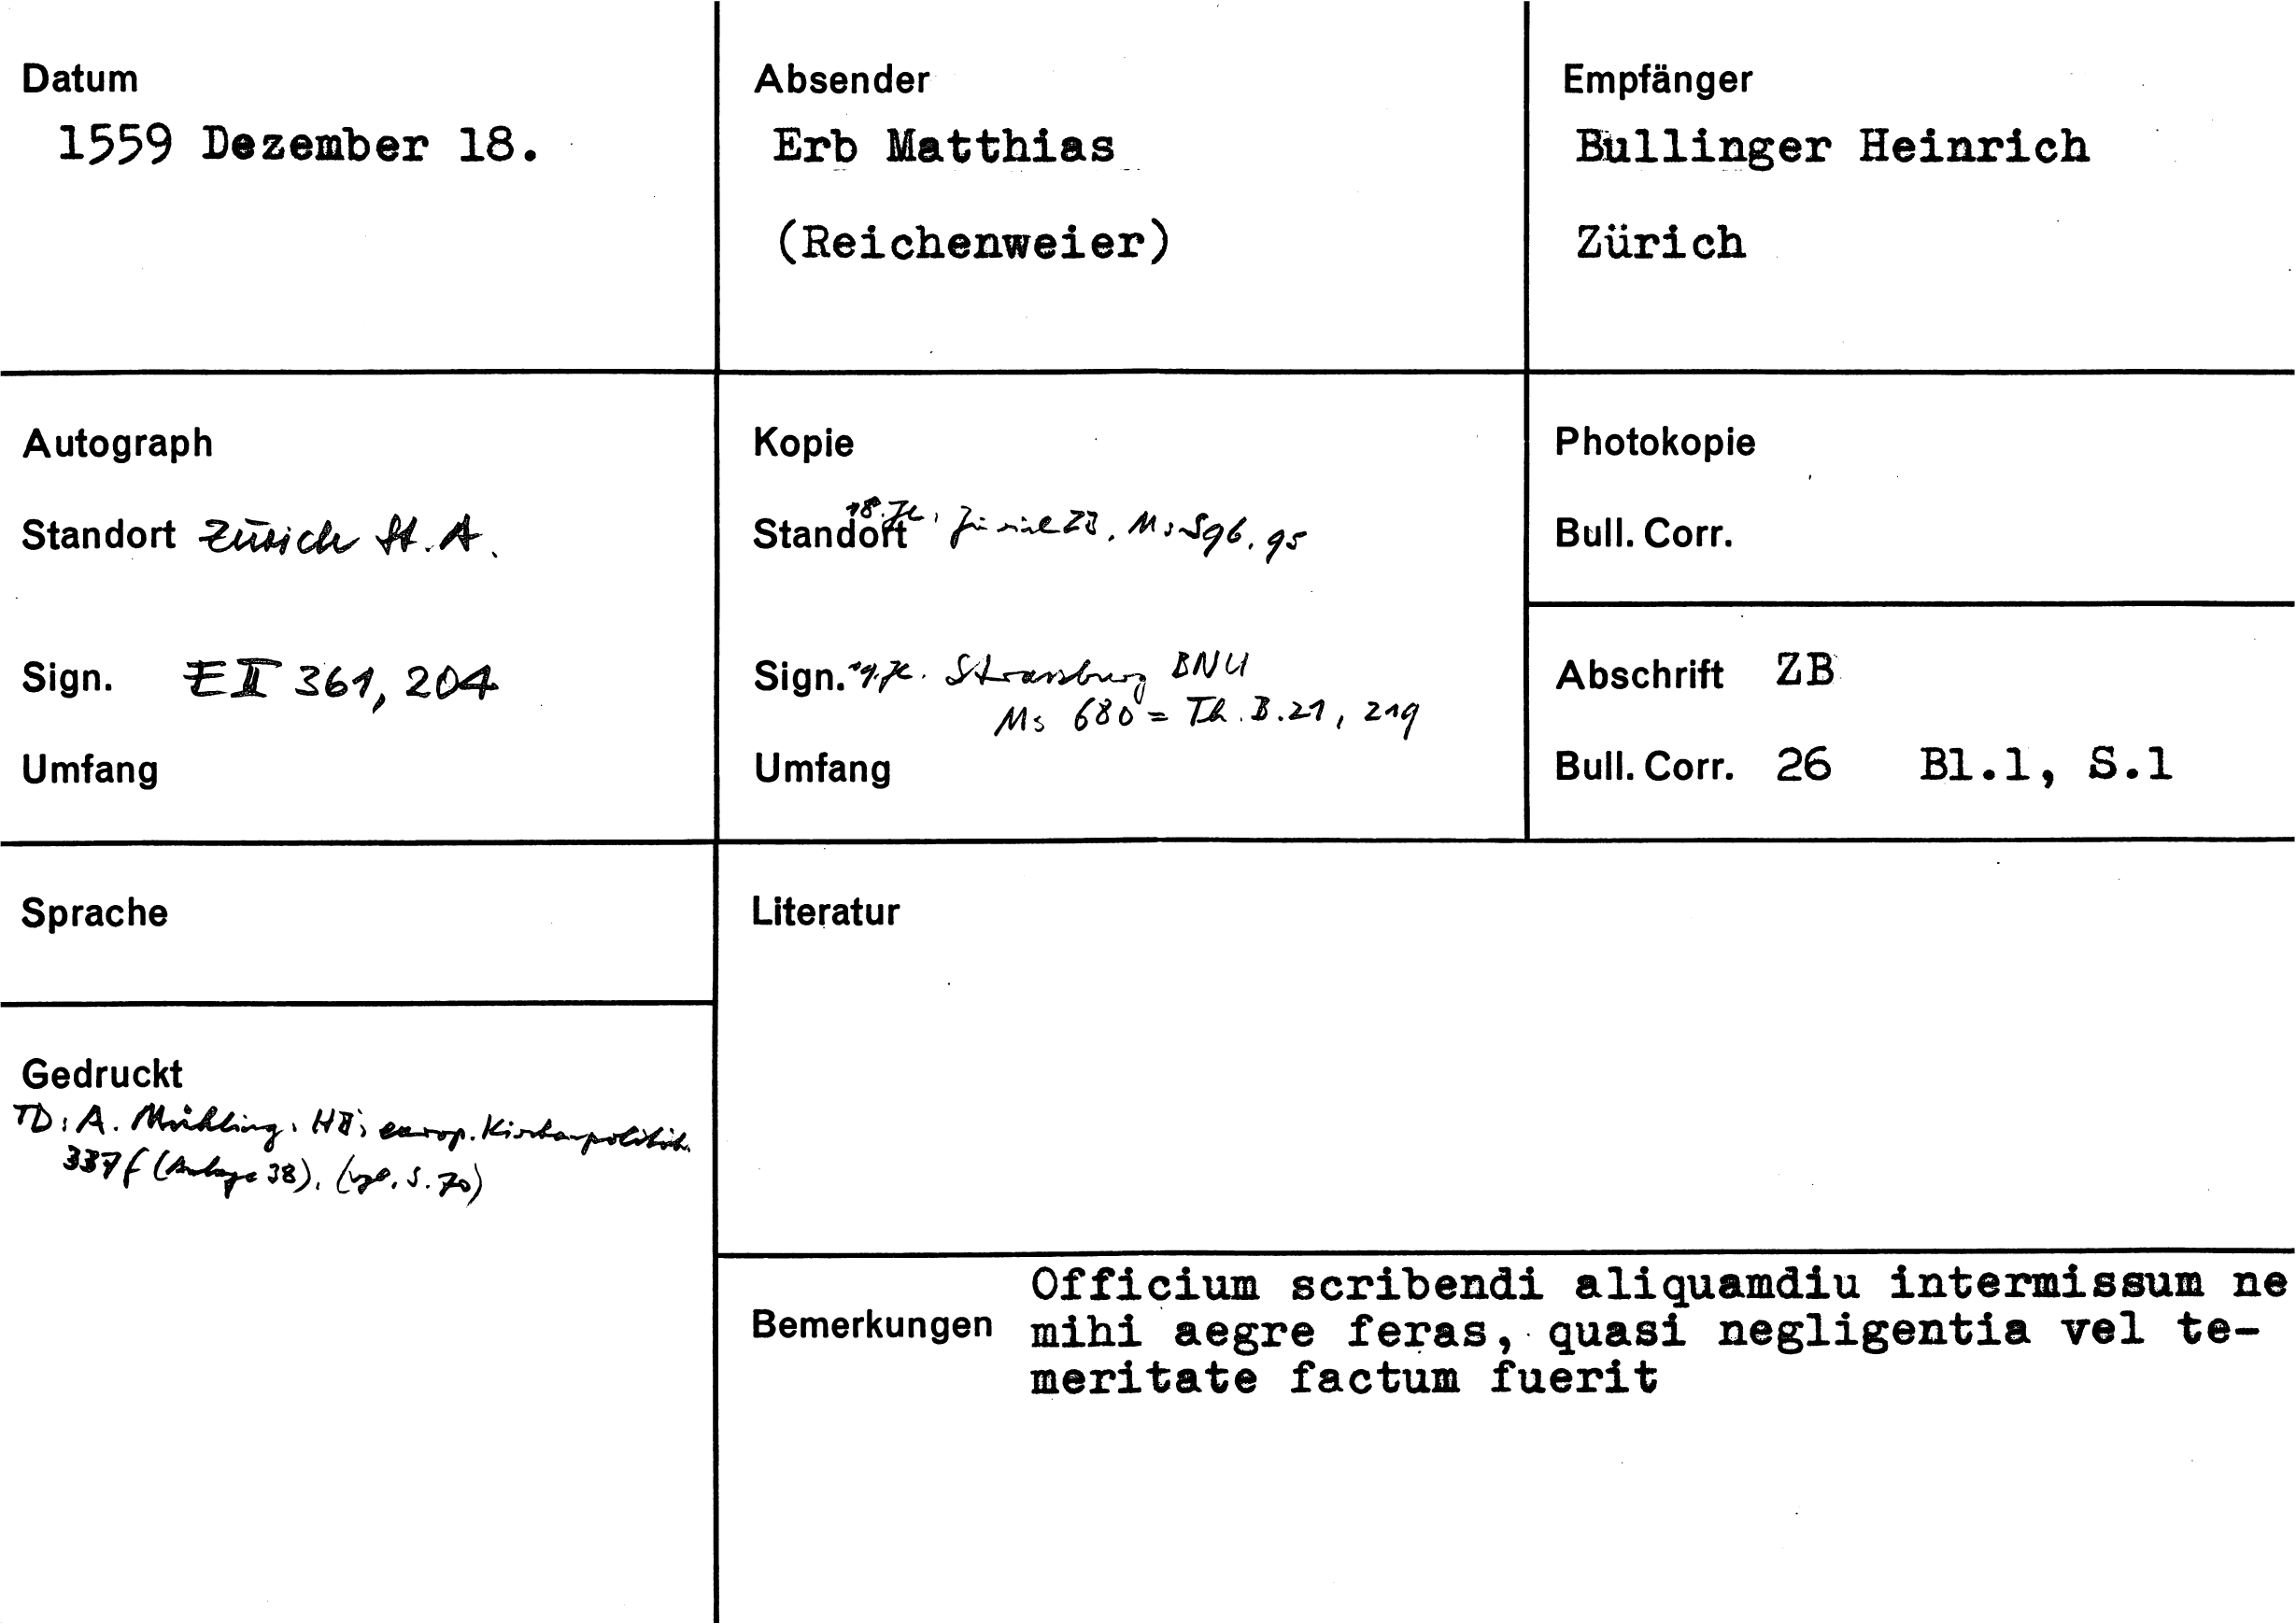 Datum
1559 Dezember 18.
Absender
Erb Matthias
(Reichenweier)
Empfänger
Bullinger Heinrich
Zürich
Autograph
Standort Zürich St. A.
Sign. E II 361, 204
Umfang
Kopie
18. Jh.
Standort Zürich ZB, Ms S 96, 95
Sign. 19. Jh. Strassburg BNU
Ms 680 = Th. B. 21, 219
Umfang
Photokopie
Bull. Corr.
Abschrift ZB
Bull. Corr. 26 Bl.1, S.1
Sprache
Gedruckt
TD: A. Mühling, HB's europ. Kirchenpolitik
337f (Anlage 38), (vgl. S. 70)
Literatur
Bemerkungen
Officium scribendi aliquamdiu intermissum ne
mihi aegre feras, quasi negligentia vel te-
meritate factum fuerit